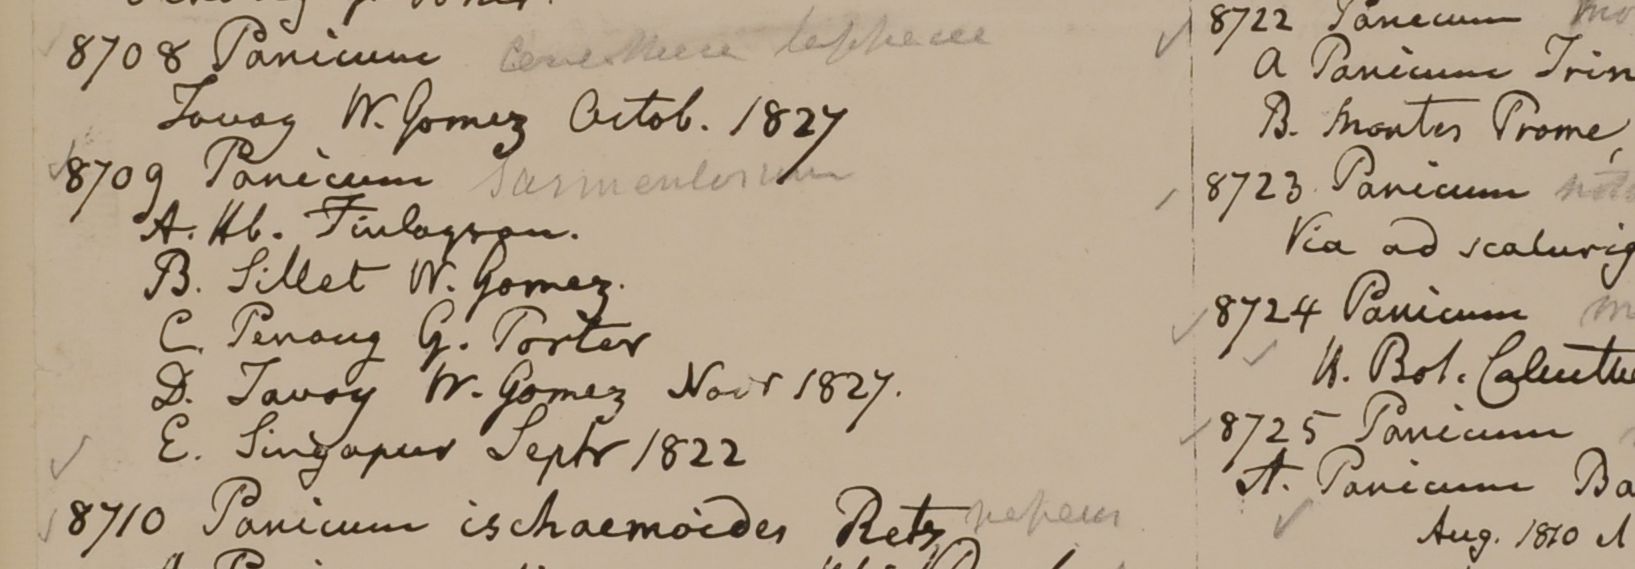 8708 Panicum
Tavoy W. Gomez Octob. 1827
8709 Panicum Sarmentosum
A. Hb. Finlayson.
B. Sillet W. Gomez.
C. Penang G. Porter
D. Tavoy W. Gomez Novr 1827.
E. Singapur Septr 1822
8710 Panicum ischaemoides Retz repens
8722 Panicum
A Panicum Trin
B. Montes Prome,
8723 Panicum
Via ad scaturig
8724 Panicum
H. Bot. Calcutt
8725 Panicum
A. Panicum Ba
Aug. 1810